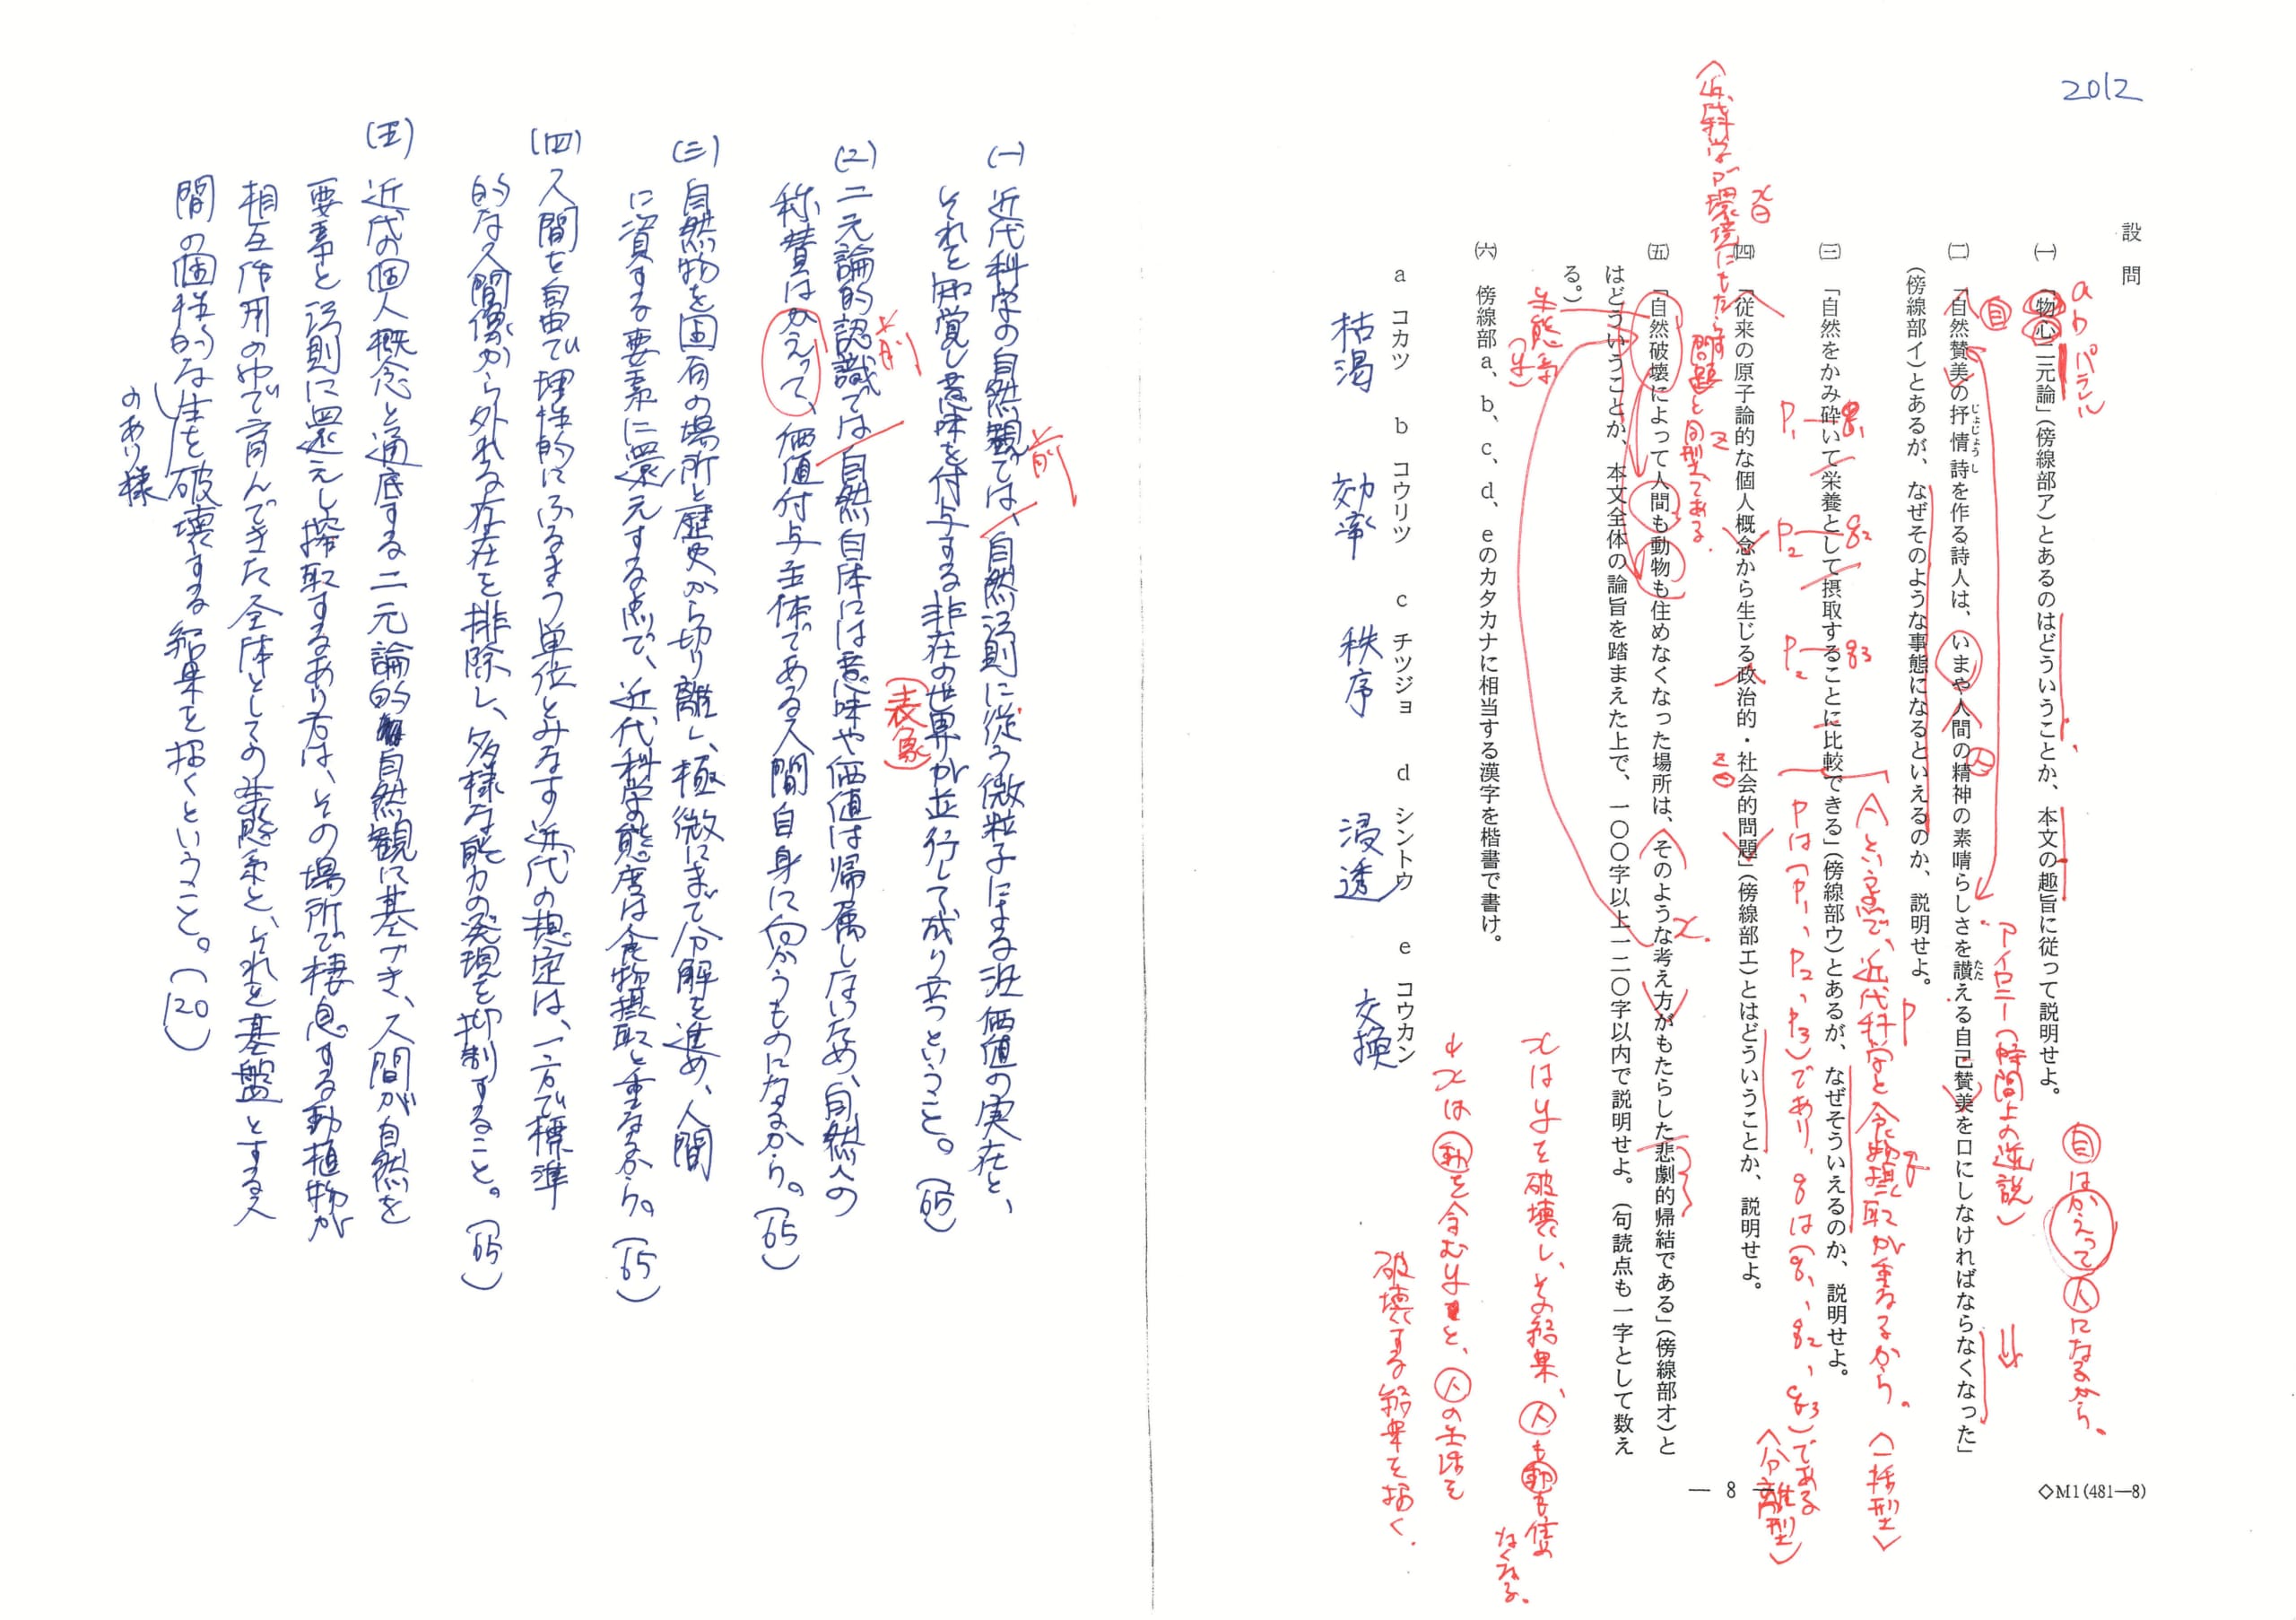 2012
設問
㈠　「物心二元論」(傍線部ア)とあるのはどういうことか、本文の趣旨に従って説明せよ。
a
b
パラレル
㈡　「自然賛美の抒情詩を作る詩人は、いまや人間の精神の素晴らしさを讃える自己賛美を口にしなければならなくなった」
じょじょうし
たた
(傍線部イ)とあるが、なぜそのような事態になるといえるのか、説明せよ。
自
人
アイロニー(時間上の逆説)
⇓
自はかえって人になるから。
㈢　「自然をかみ砕いて栄養として摂取することに比較できる」(傍線部ウ)とあるが、なぜそういえるのか、説明せよ。
Aという点で、近代科学と食物摂取が重なるから。〈一括型〉
P1―q1
P2―q2
q3
Pは(P1、P2、P3)であり、qは(q1、q2、q3)である
〈分離型〉
㈣　「従来の原子論的な個人概念から生じる政治的・社会的問題」(傍線部エ)とはどういうことか、説明せよ。
〈近代科学が環境にもたらす
問題と同型である。
㈤　「自然破壊によって人間も動物も住めなくなった場所は、そのような考え方がもたらした悲劇的帰結である」(傍線部オ)と
はどういうことか、本文全体の論旨を踏まえた上で、一〇〇字以上一二〇字以内で説明せよ。(句読点も一字として数え
る。)
生態系
(y)
x.
xはyを破壊し、その結果、人も動も住め
なくなる。
↓
xは動を含むyと、人の生活を
破壊する結果を招く.
㈥　傍線部a、b、c、d、eのカタカナに相当する漢字を楷書で書け。
a　コカツ　b　コウリツ　c　チツジョ　d　シントウ　e　コウカン
枯渇　効率　秩序　浸透　交換
— 8 —
◇M1(481—8)
(一)　近代科学の自然観では、自然法則に従う微粒子による没価値の実在と、
それを知覚し意味を付与する非在の世界が並行して成り立つということ。(65)
前
表象
(2)　二元論的認識では自然自体には意味や価値は帰属しないため、自然への
称賛はかえって、価値付与主体である人間自身に向かうものになるから。(65)
前
(三)　自然物を固有の場所と歴史から切り離し、極微にまで分解を進め、人間
に資する要素に還元する点で、近代科学の態度は食物摂取と重なるから。(65)
(四)　人間を自由で理性的にふるまう単位とみなす近代の想定は、一方で標準
的な人間像から外れる存在を排除し、多様な能力の発現を抑制すること。(65)
(五)　近代の個人概念と通底する二元論的自然観に基づき、人間が自然を
要素と法則に還元し搾取するあり方は、その場所で棲息する動植物が
相互作用の中で育んできた全体としての生態系と、それを基盤とする人
間の個性的な生を破壊する結果を招くということ。(120)
のあり様